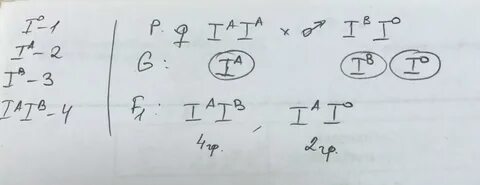 I⁰-1
I^A-2
I^B-3
I^A I^B-4
P. ♀ I^A I^A × ♂ I^B I^0
G: I^A I^B I^0
F₁: I^A I^B , I^A I^0
4гр. 2гр.